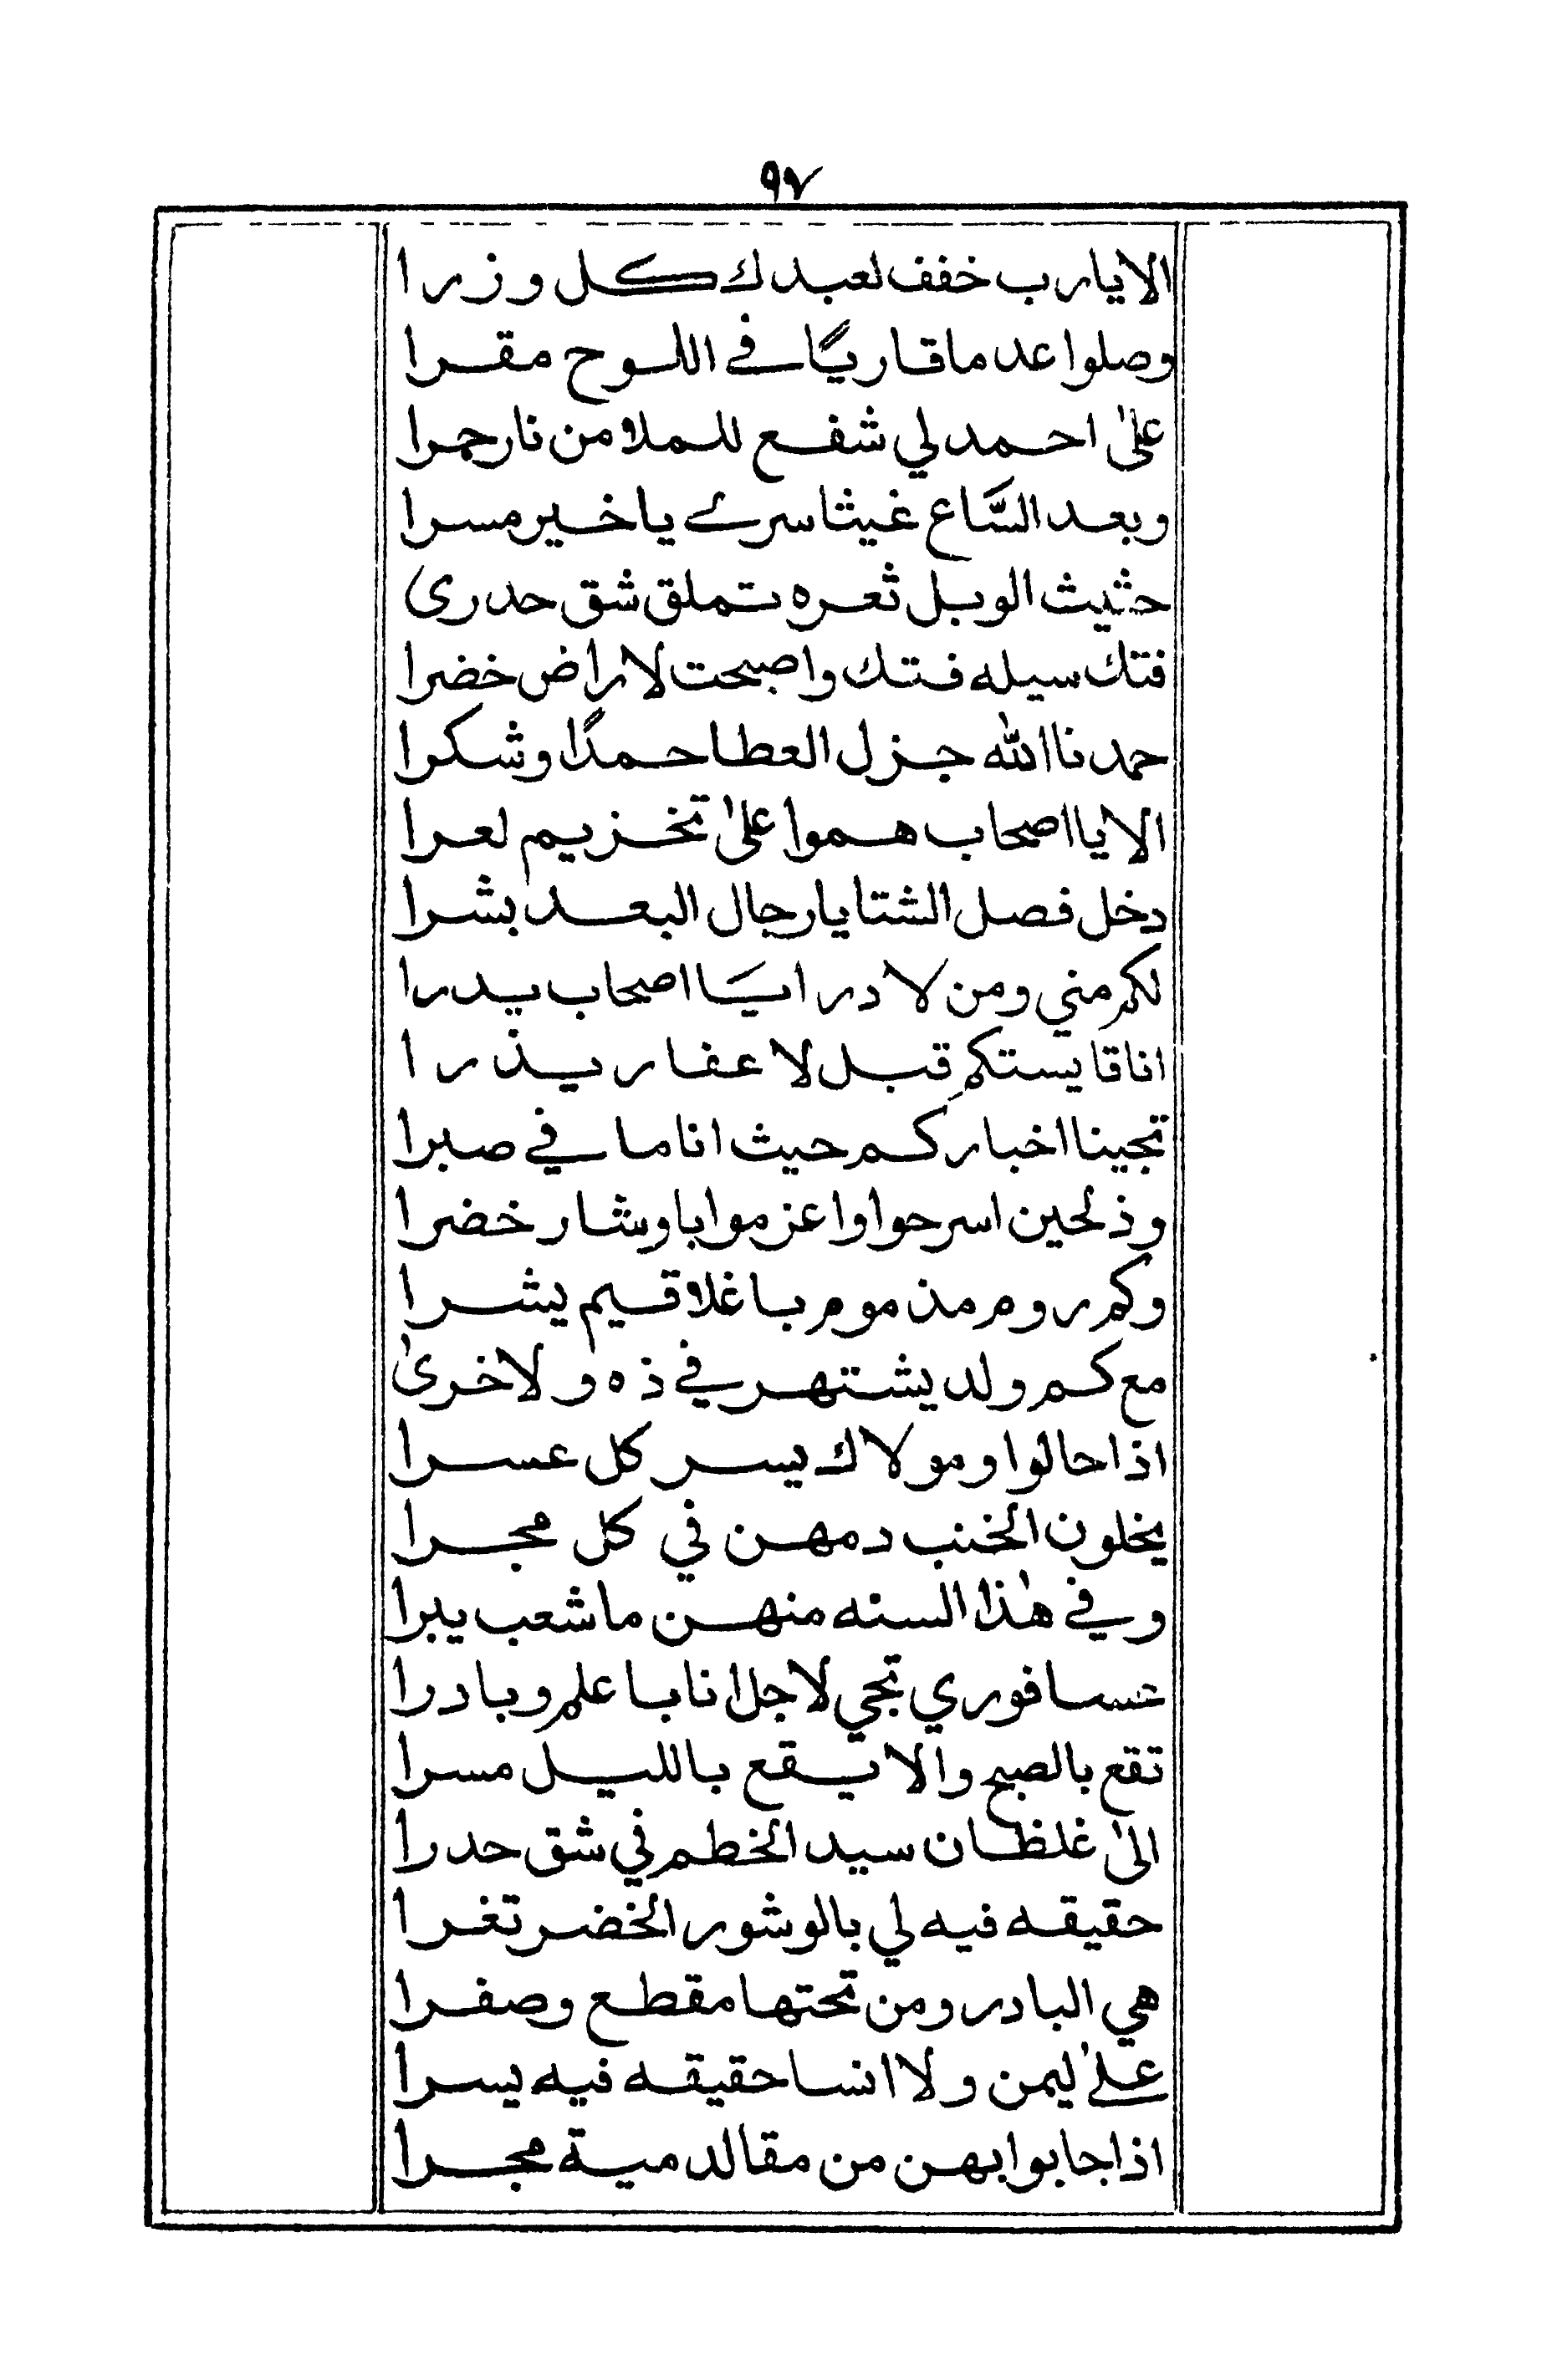 ٩٧
الايارب خفف لعبدك كل وزرا
وصلوا عد ماقاريًا في اللوح مقرا
على احمد لي شفع للملا من نار جمرا
وبعد السَّاع غيثا سرى يا خير مسرا
حثيث الوبل ثعره تملق شق حدرى
فتك سيله فتك واصبحت لاراض خضرا
حمدنا الله جزل العطا حمدًا وشكرا
الا يا اصحاب هموا على تخزيم لعرا
دخل فصل الشتا يارجال البعد بشرا
لكم مني ومن لادرا يَا اصحاب يدرا
انا قايستكم قبل لا عفار يذرا
تجينا اخباركم حيث انا ما في صبرا
وذلحين اسرحوا واعزموا باوشار خضرا
وكم روم من موم باغلاقيم يشرا
مع كم ولد يشتهر في ذه ولاخرى
اذا حالوا ومولاك يسر كل عسرا
يخلون الخنب دمهن في كل مجرا
وفي هٰذا السنه منهن ما شعب يبرا
عسا فوري تجي لاجل انا با علم وبادرا
تقع بالصبح والا يقع بالليل مسرا
الى غلظان سيد الخطم في شق حدرا
حقيقه فيه لي بالوشور الخضر تغرا
هي البادر ومن تحتها مقطع وصفرا
على ليمن ولا انسا حقيقه فيه يسرا
اذا جابوا بهن من مقالد مية مجرا